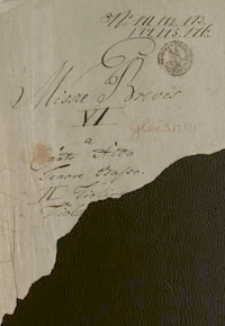 No 111. 112. 113.
114. 115. 116.
Missæ Breves
VI
a
Canto Alto
Tenore Basso
II Violini